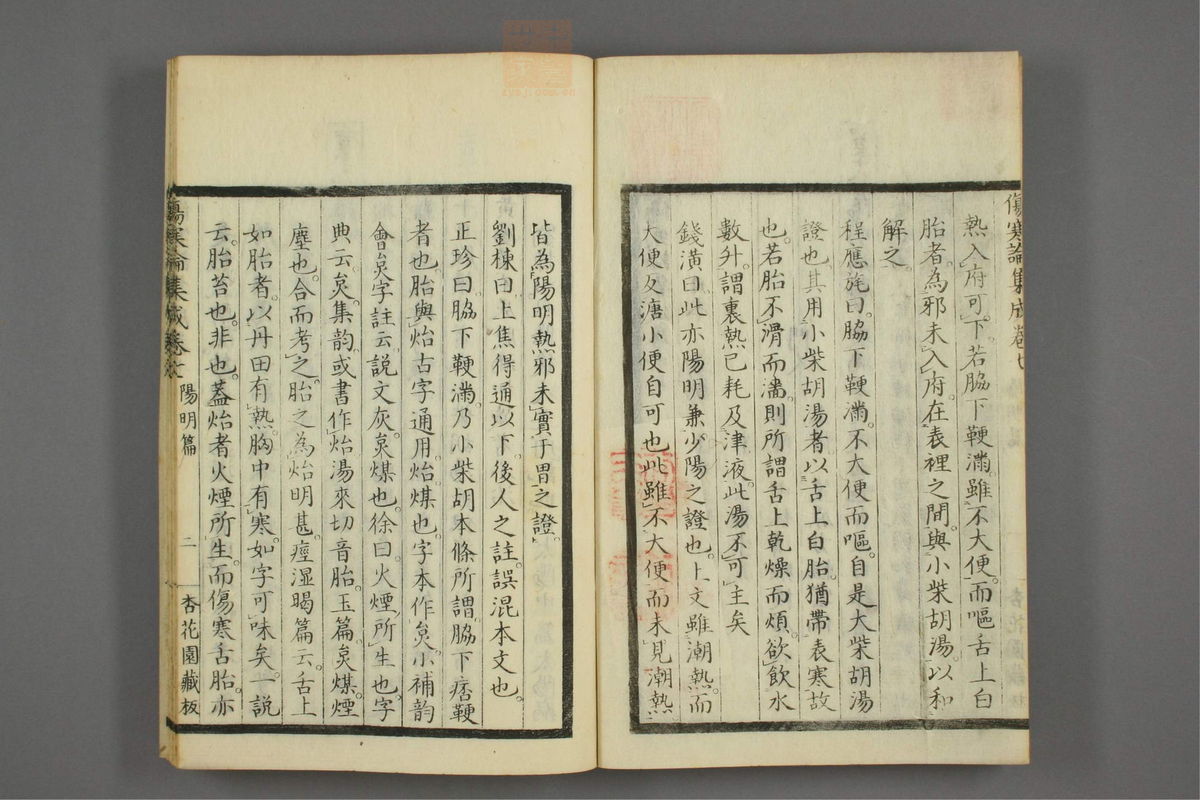 傷寒論集成卷七
熱入府可下若脇下鞕滿雖不大便而嘔舌上白
胎者為邪未入府在表裡之間與小柴胡湯以和
解之
程應旄曰脇下鞕滿不大便而嘔自是大柴胡湯
證也其用小柴胡湯者以舌上白胎猶帶表寒故
也若胎不滑而濇則所謂舌上乾燥而煩欲飲水
數升謂裏熱已耗及津液此湯不可主矣
錢潢曰此亦陽明兼少陽之證也上文雖潮熱而
大便反溏小便自可也此雖不大便而未見潮熱
皆為陽明熱邪未實于胃之證
劉棟曰上焦得通以下後人之註誤混本文也
正珍曰脇下鞕滿乃小柴胡本條所謂脇下痞鞕
者也胎與炲古字通用炲煤也字本作炱小補韵
會炱字註云說文灰炱煤也徐曰火煙所生也字
典云炱集韵或書作炲湯來切音胎玉篇炱煤煙
塵也合而考之胎之為炲明甚痙湿暍篇云舌上
如胎者以丹田有熱胸中有寒如字可味矣一說
云胎苔也非也蓋炲者火煙所生而傷寒舌胎亦
傷寒論集成卷七
陽明篇
二
杏花園藏板